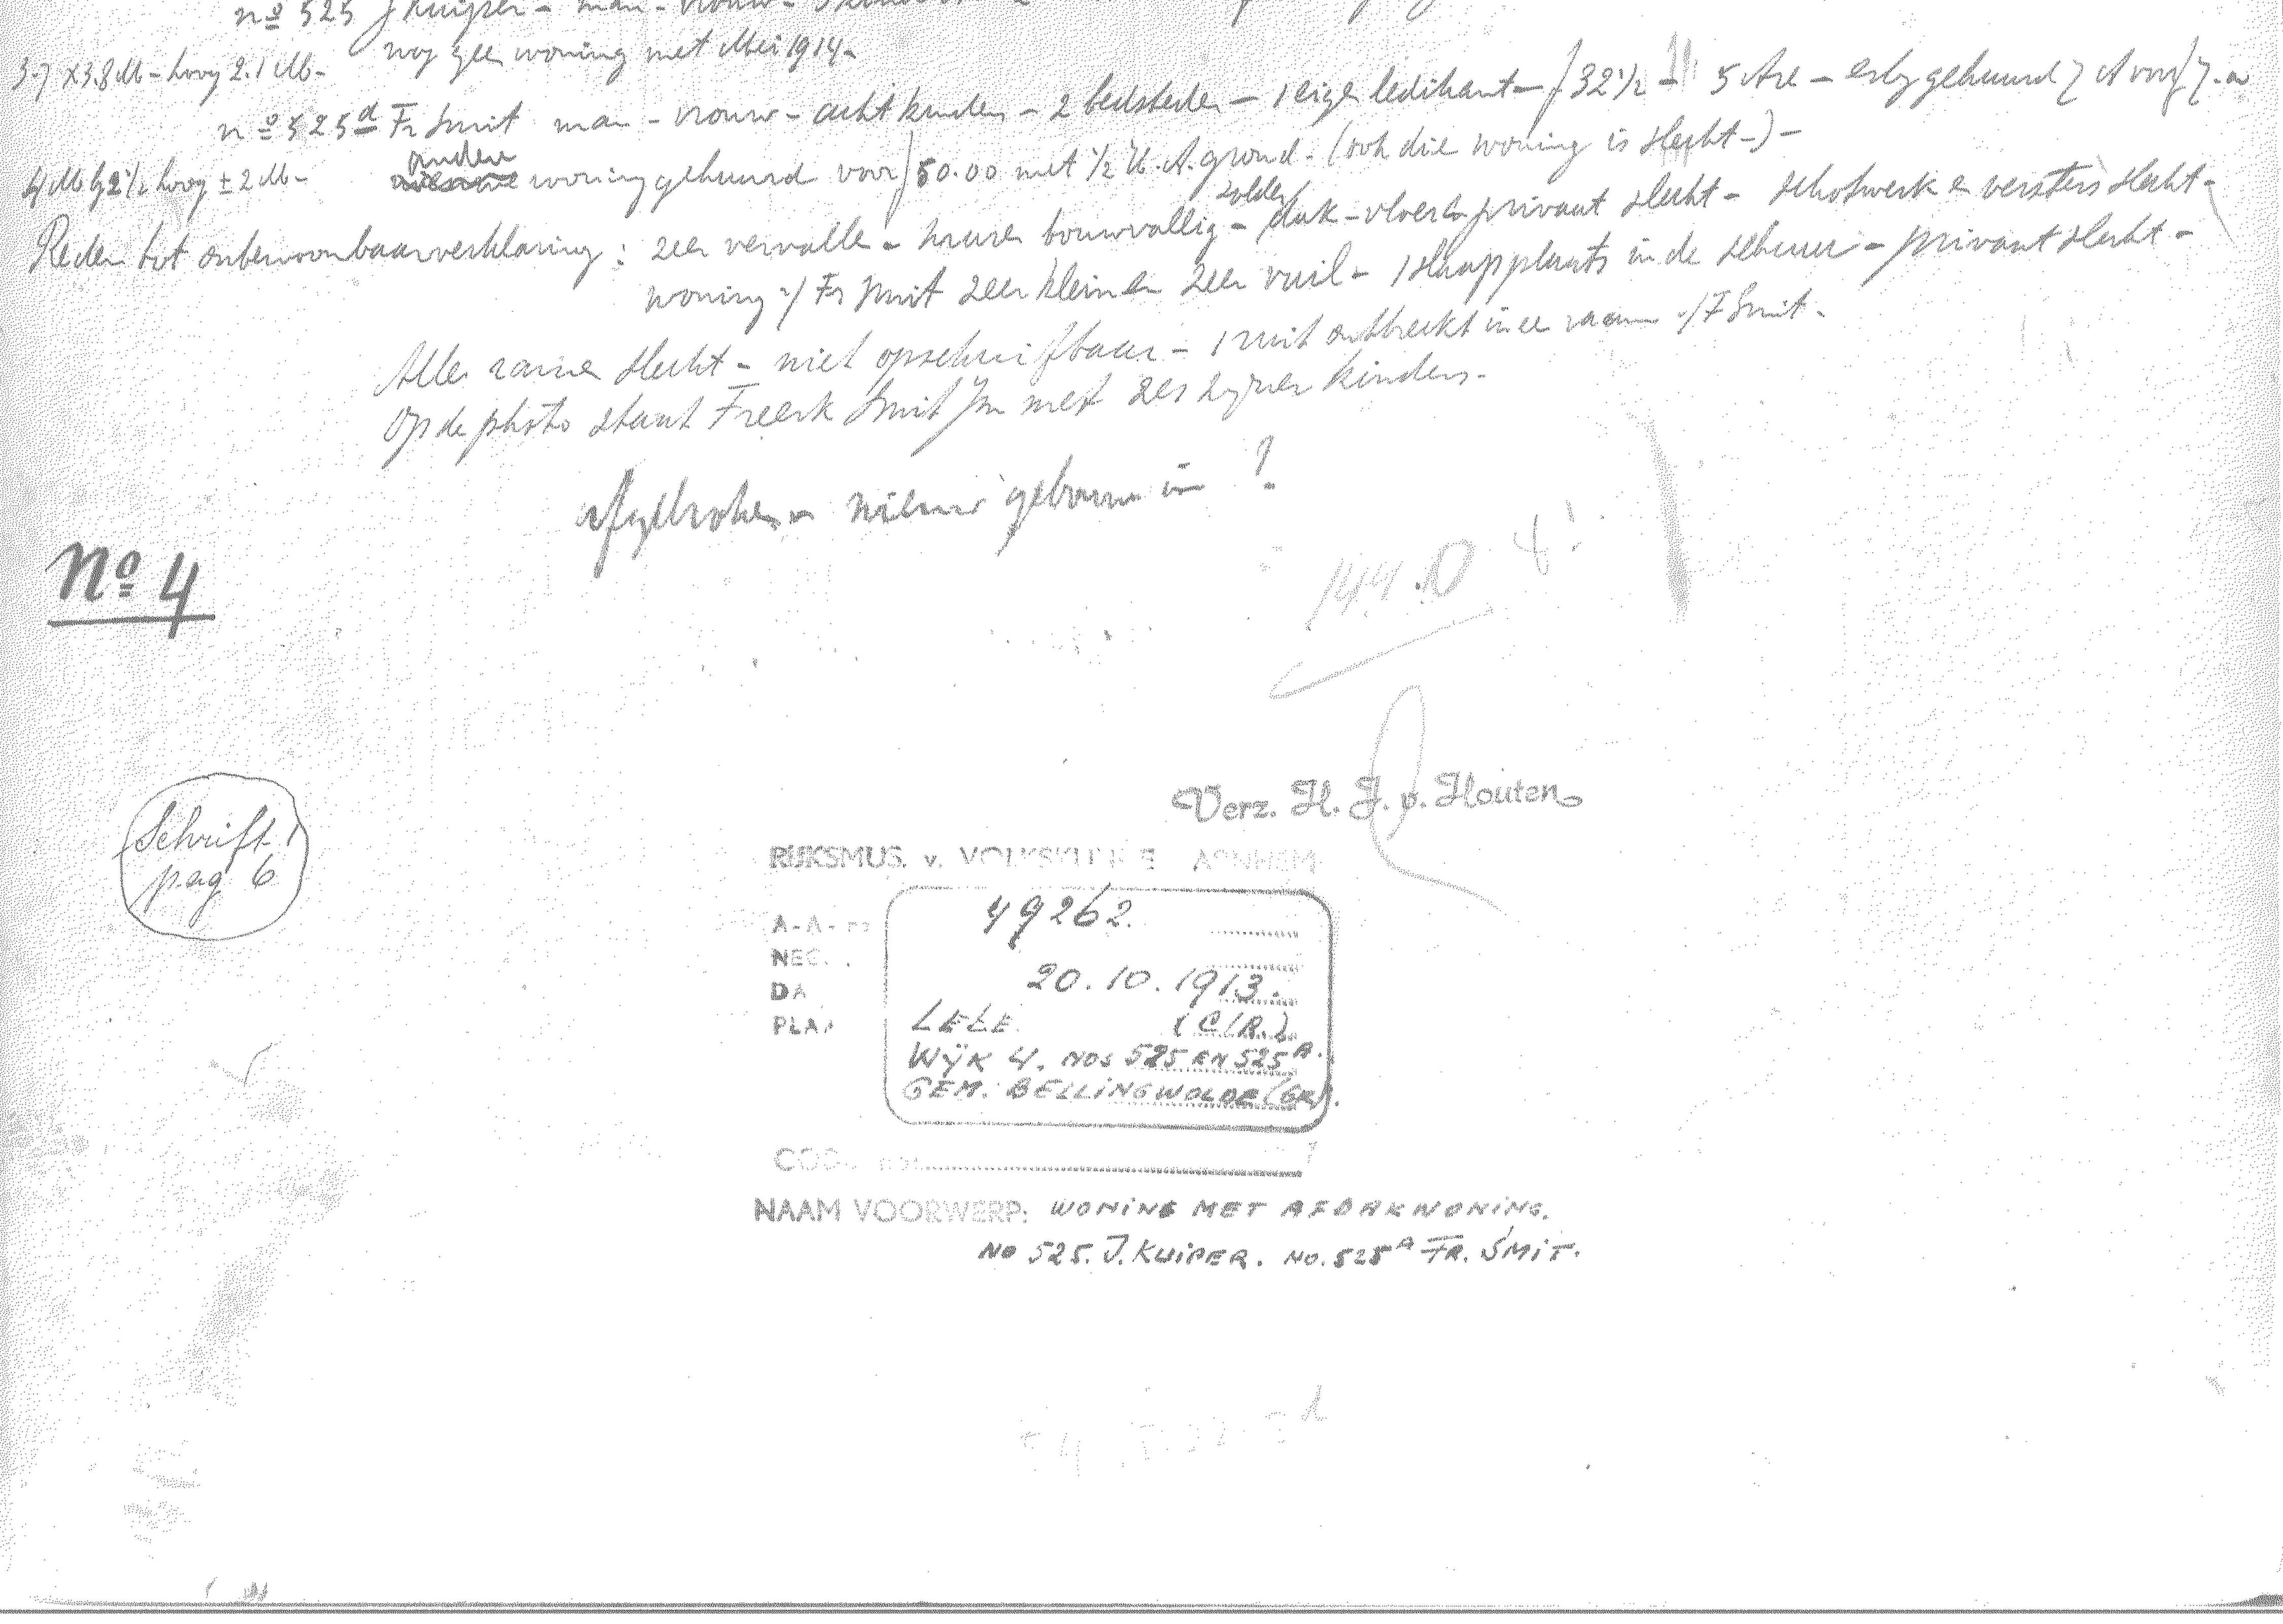 no 525 J Kuiper - man - vrouw -
nog geen woning met Mei 1914 -
3.7 x 3.8 M - hoog 2.1 M -
no 525a Fr Smit man - vrouw - acht kinderen - 2 bedsteden - 1 eigen ledikant - f 32 1/2 - 5 Are - erbij gehuurd 7 A voor f 7.-
andere
4 M bij 2 1/2 hoog ± 2 M - woning gehuurd voor f 50.00 met 1/2 H.A. grond - (ook die woning is slecht -) -
zolder
Reden tot onbewoonbaarverklaring: zeer vervallen - muren bouwvallig - dak - vloer en privaat slecht - schotwerk en vensters slecht -
woning v/ Fr Smit zeer klein en zeer vuil - 1 slaapplaats in de schuur - privaat slecht -
Alle ramen slecht - niet opschuifbaar - 1 ruit ontbreekt in een raam v/ F Smit -
Op de photo staat Freerk Smit Jzn met zes zijner kinders -
Afgebroken en nieuw gebouwd in ?
No 4
144.0
Verz. H. J. v. Houten
Schrift 1
pag 6
RIJKSMUS. v. VOLKSKUNDE ARNHEM
A-A-nr 49262.
NEG.
DA 20.10.1913.
PLA LEŁE (C/R.)
WYK 4. NOS 525 EN 525A.
GEM. BELLINGWOLDE (GR).
CODE
NAAM VOORWERP: WONING MET AFDAKWONING.
NO 525. J. KUIPER. NO. 525A FR. SMIT.